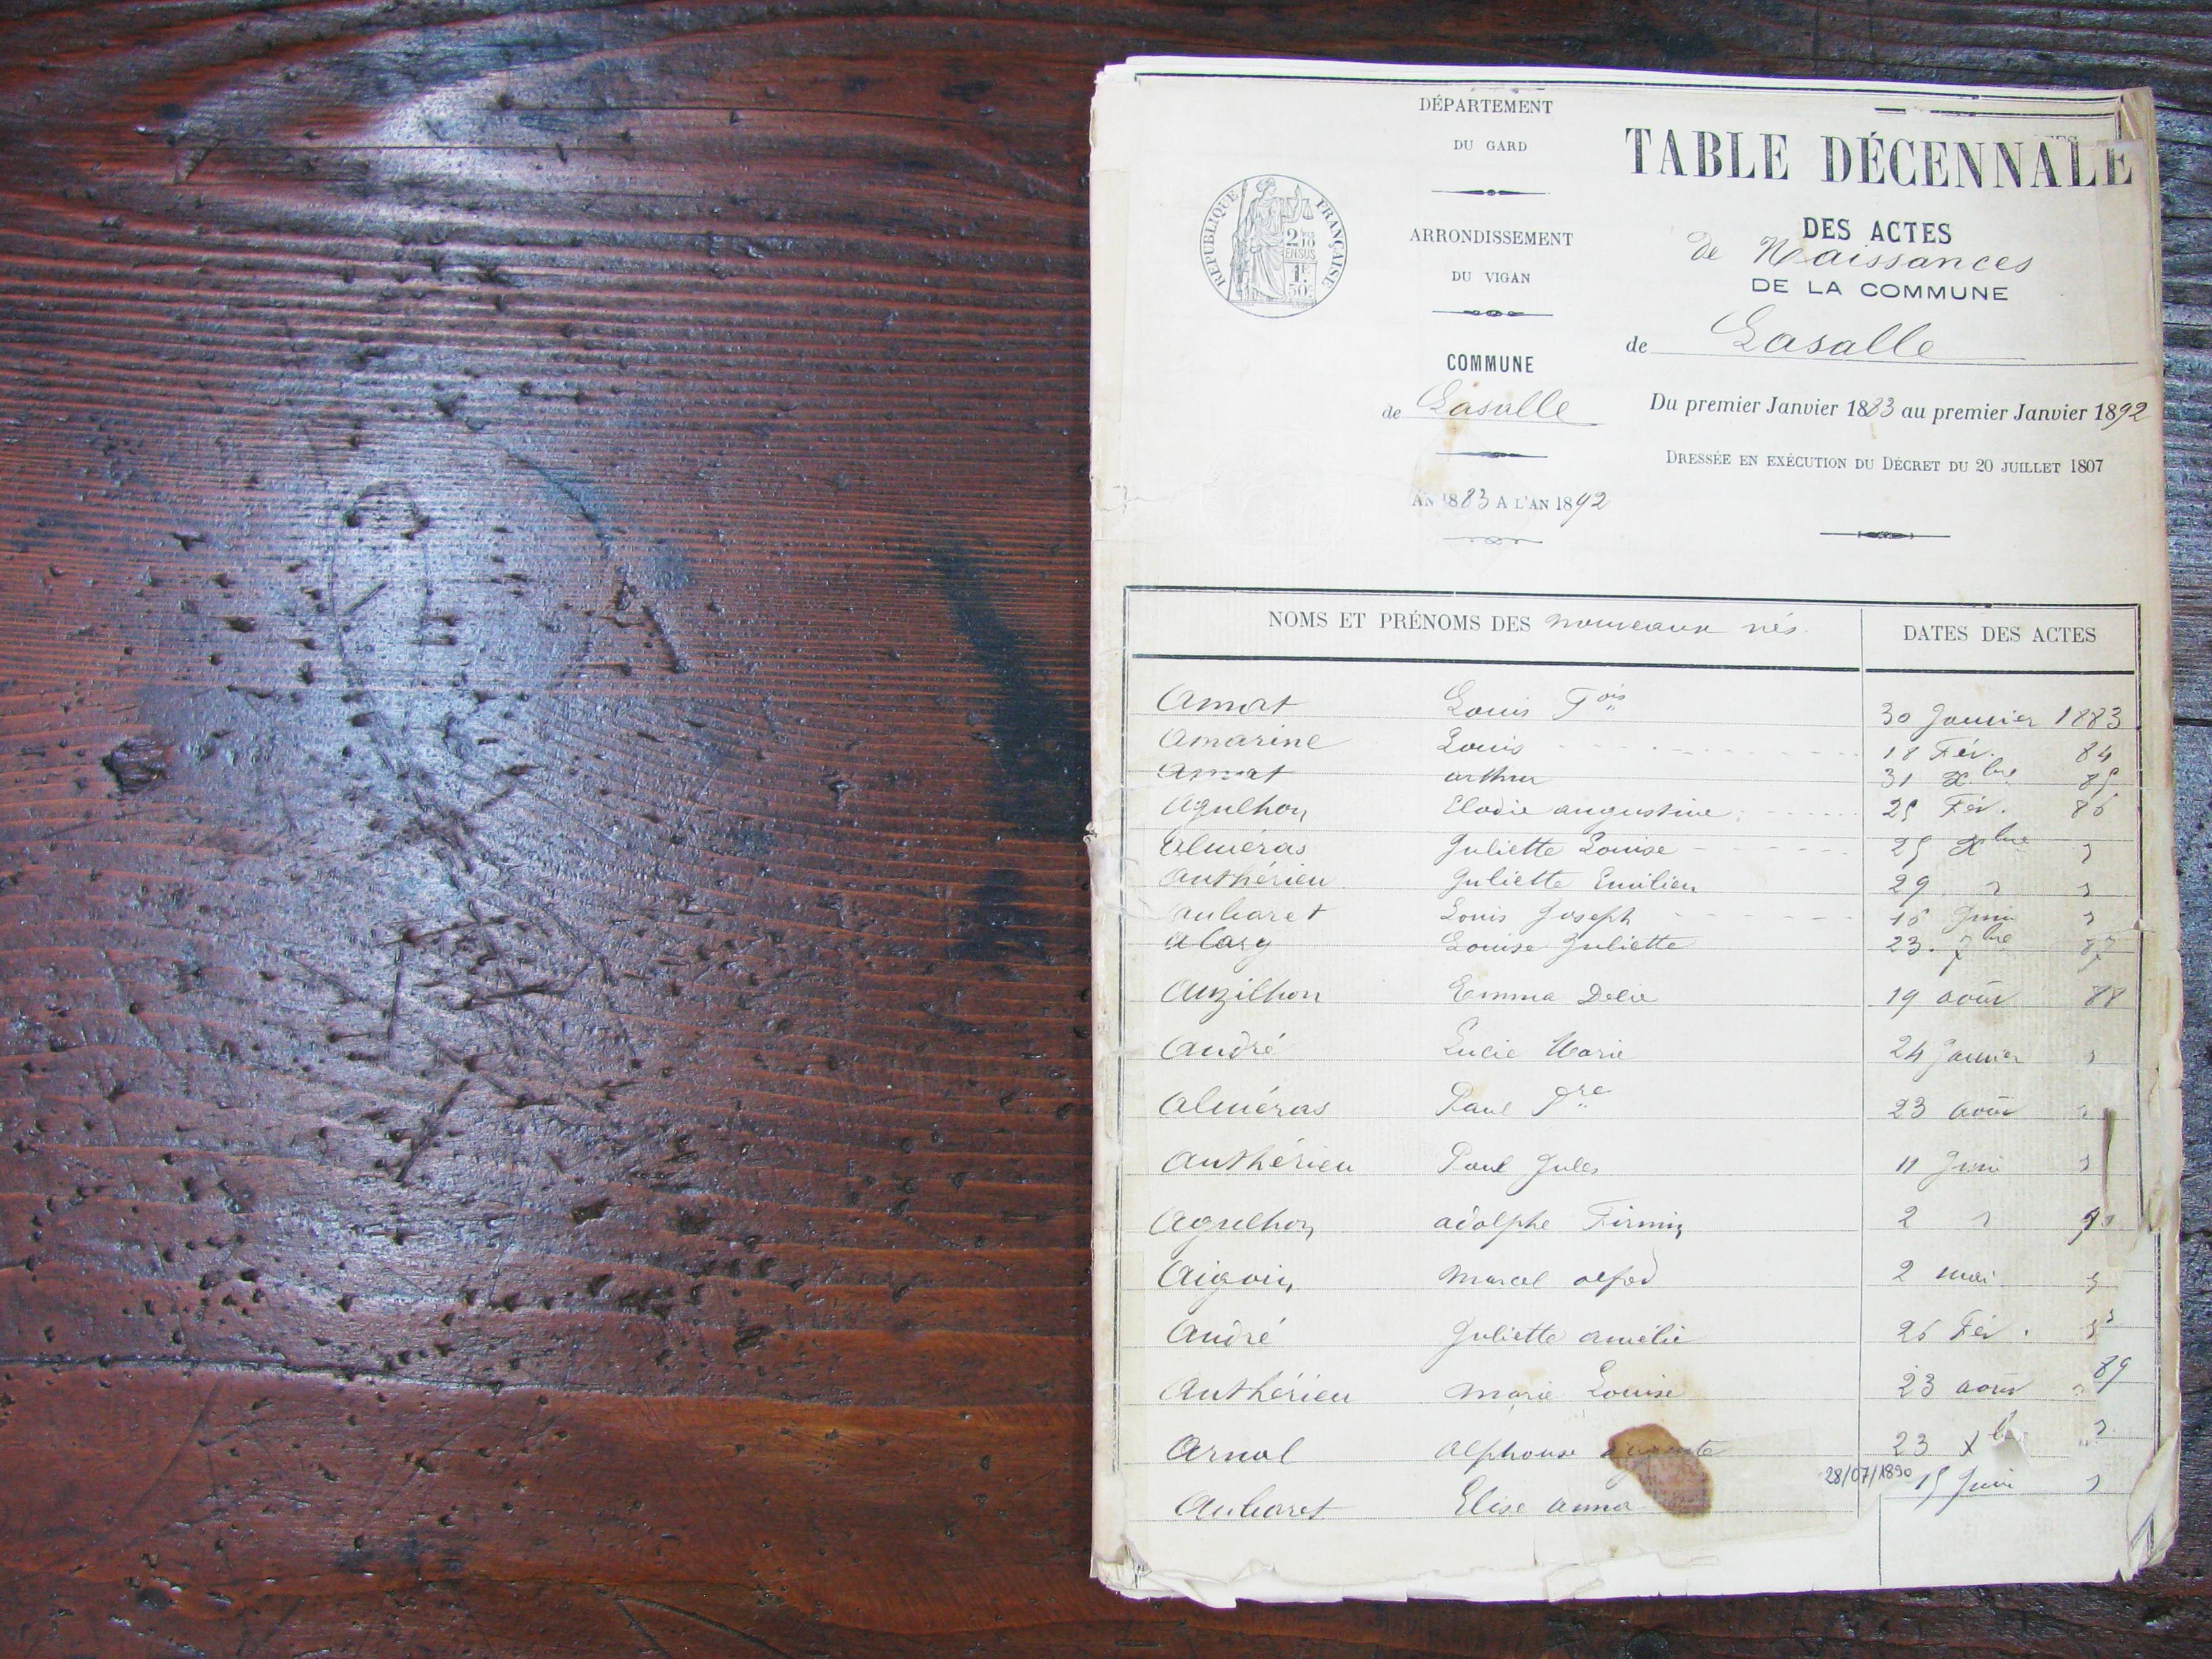 DÉPARTEMENT
DU GARD
ARRONDISSEMENT
DU VIGAN
COMMUNE
de Lasalle
AN 1883 A L'AN 1892
RÉPUBLIQUE FRANÇAISE
2/10
EN SUS
1F
50
TABLE DÉCENNALE
DES ACTES
de Naissances
DE LA COMMUNE
de Lasalle
Du premier Janvier 1883 au premier Janvier 1892
DRESSÉE EN EXÉCUTION DU DÉCRET DU 20 JUILLET 1807
NOMS ET PRÉNOMS DES nouveaux nés. DATES DES ACTES
Amat Louis Fois 30 Janvier 1883
Amarine Louis 18 Fév. 84
Amat arthur 31 Xbre 85
Agulhon Elodie augustine 25 Fév. 86
Alméras Juliette Louise 25 Xbre
Authérieu Juliette Emilien 29
Aubaret Louis Joseph 16 Juin
Alary Louise Juliette 23. 7bre 87
Auzilhon Emma Delie 19 août 88
André Lucie Marie 24 Janvier
Alméras Paul 23 août
Authérieu Paul Jules 11 Juin
Agulhon adolphe Firmin 2
Aigoin Marcel 2 mai
André Juliette amélie 26 Fév.
Authérieu Marie Louise 23 août 89
Arnal Alphonse 23 Xbre
28/07/1890
Aubaret Elise anna 15 Juin